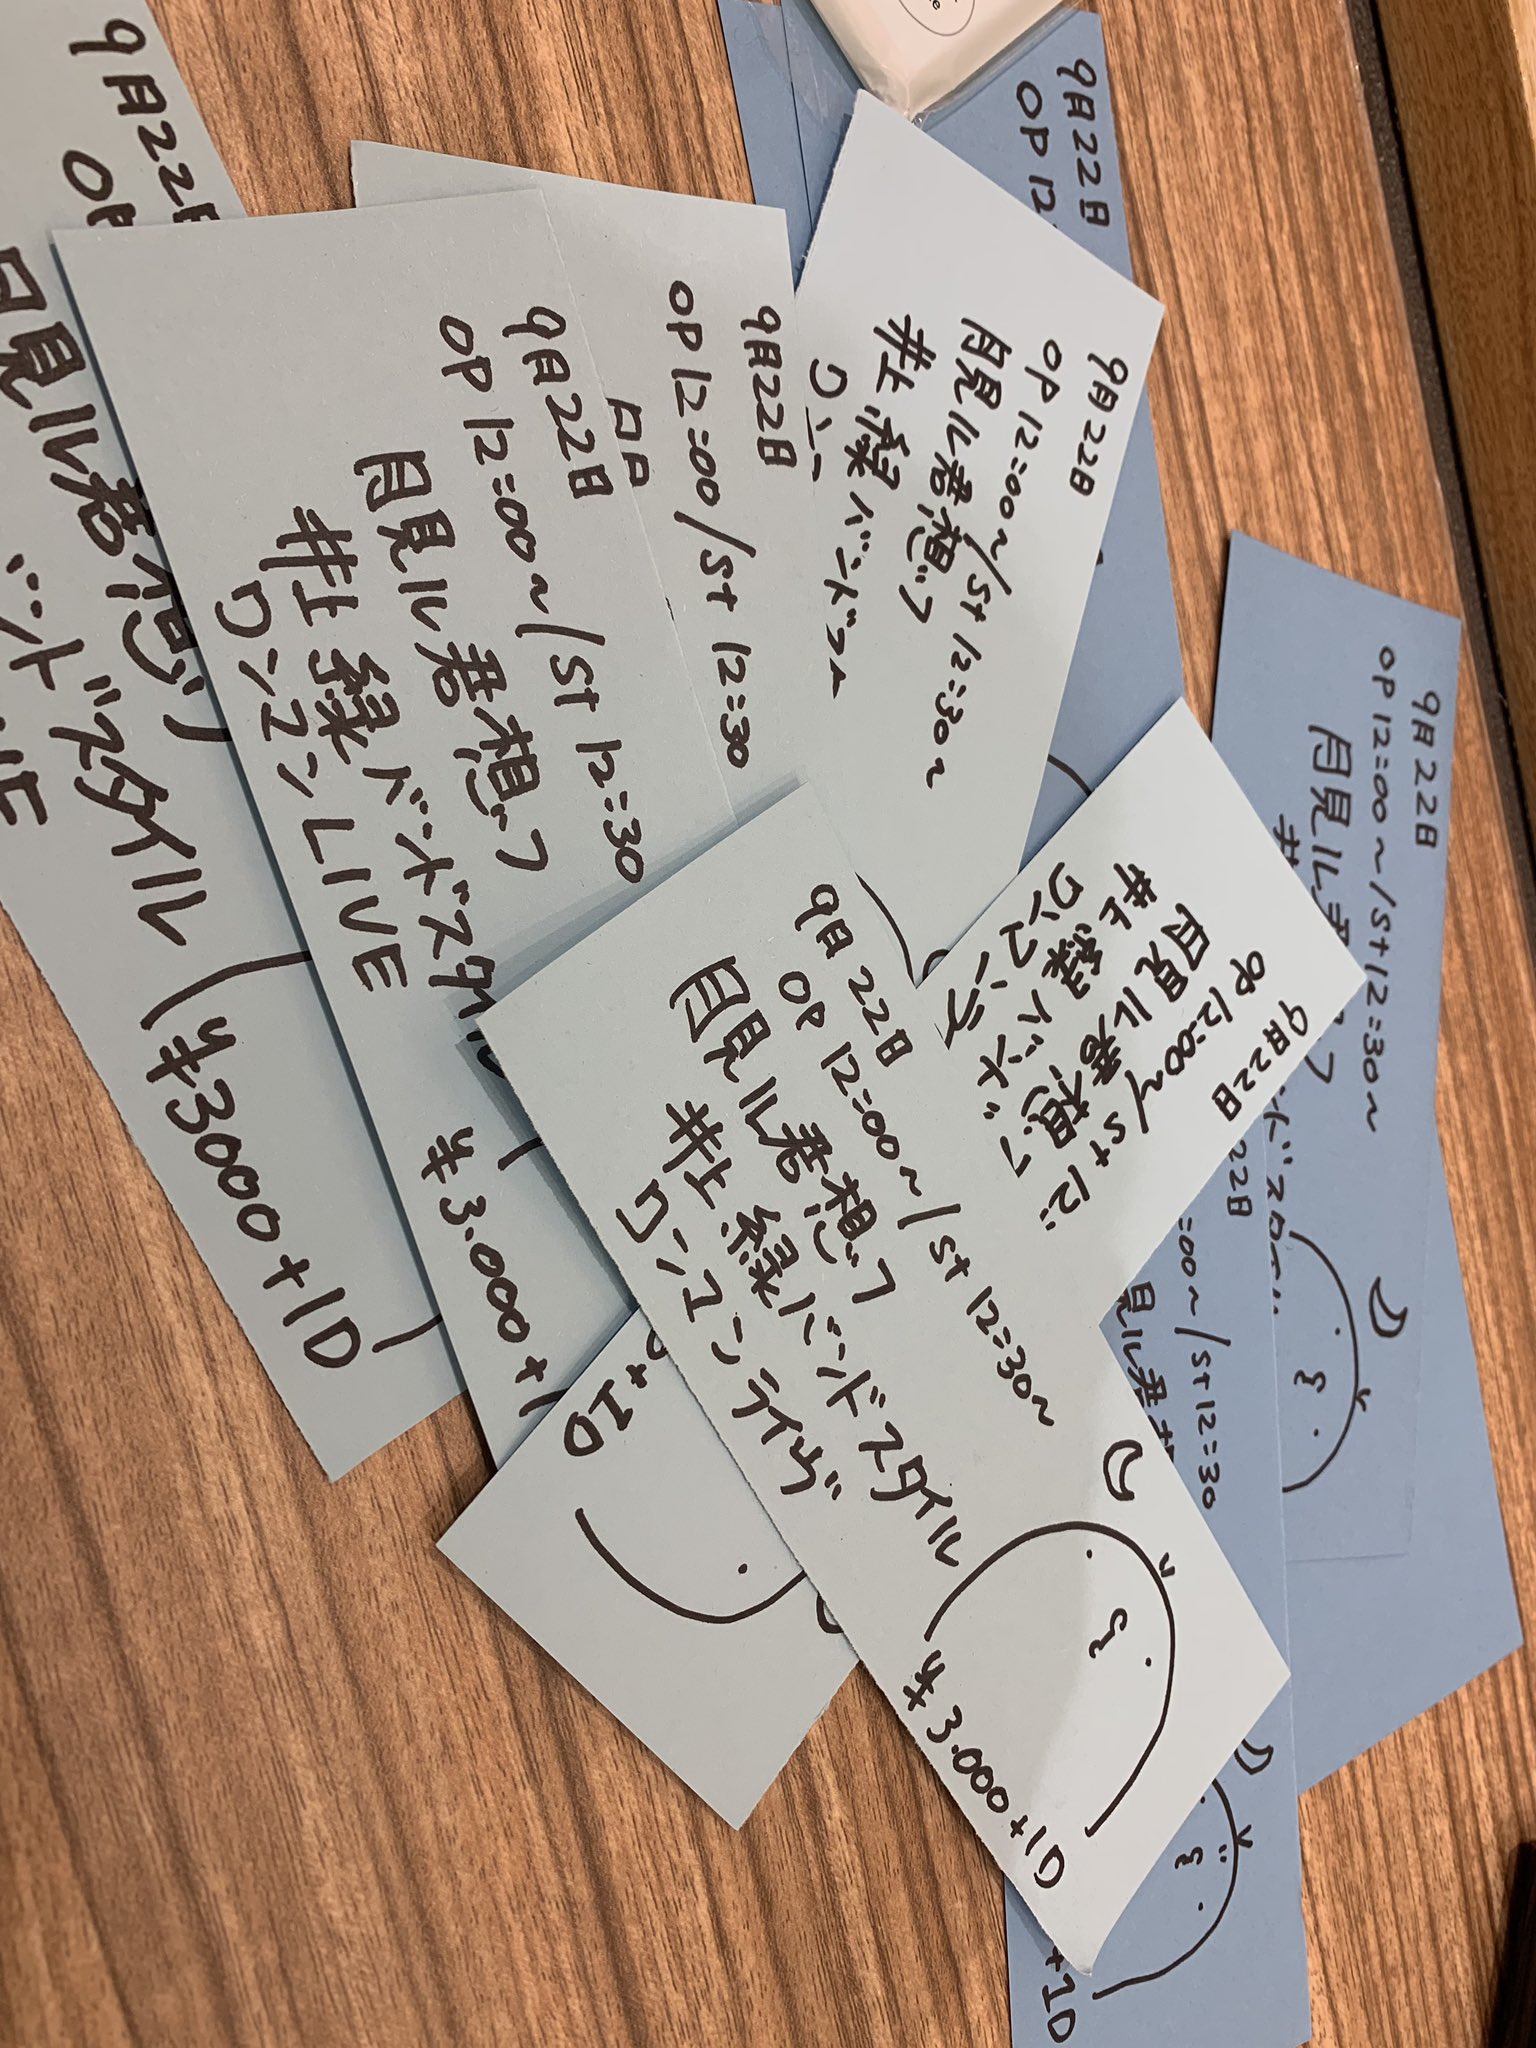 9月22日
OP 12:00~/St 12:30~
月見ル君想フ
井上緑バンドスタイル
ワンコンライヴ
¥3.000+1D
9月22日
OP 12:00~/St 12:30
月見ル君想フ
井上緑バンドスタイル
ワンマンLIVE
¥3.000+1
9月22日
OP
月見ル君想フ
ンドスタイル
¥3000+1D
9月22日
OP 12:00/St 12:30
9月22日
OP 12:00~/St 12:30~
月見ル君想フ
井上緑バンドスタ
ワン
9月22日
OP 12
9月22日
OP 12:00~/St 12:30~
月見ル君想フ
井
ンドスタイル
9月22日
OP 12:00~/St 12:
月見ル君想フ
井上緑バンド
ワンマンラ
22日
:00~/St 12:30
見ル君想
+1D
+1D